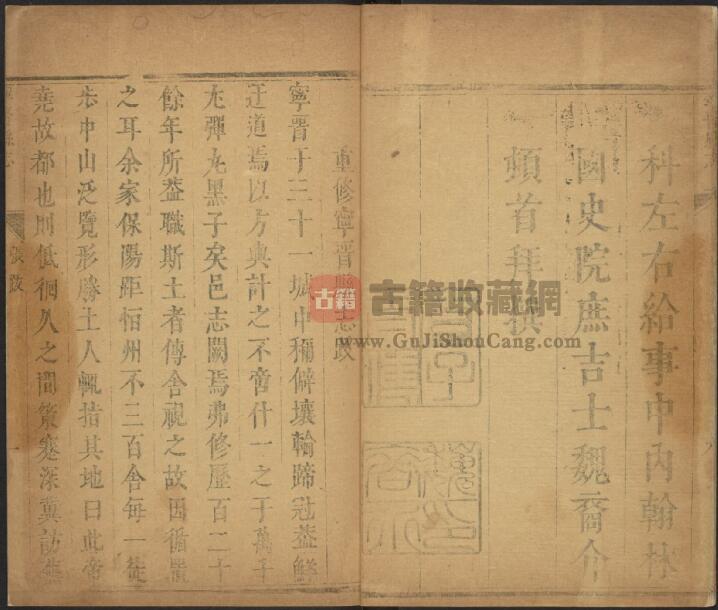 科左右給事中內翰林
國史院庶吉士魏裔介
頓首拜撰
重修寧晉縣志跋
寧晉于三十一城中稱僻壤輪蹄冠蓋鮮
迂道焉以方輿計之不啻什一之于萬
尤彈丸黑子矣邑志闕焉弗修歷百二十
餘年所蓋職斯土者傳舍視之故因循置
之耳余家保陽距恒州不三百舍每一徒
步中山泛覽形勝土人輒指其地曰此帝
堯故都也則低徊久之間策蹇深冀訪
張跋
古籍
古籍收藏网
www.GuJiShouCang.com